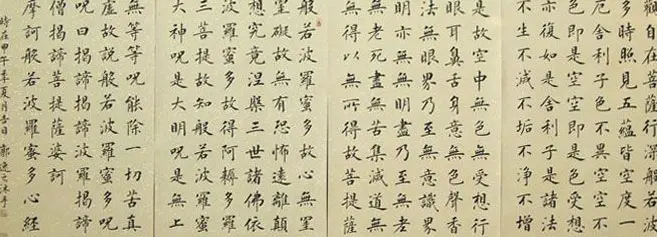 觀自在菩薩行深般若波
多時照見五蘊皆空度一
厄舍利子色不異空空不
色即是空空即是色受想
亦復如是舍利子是諸法
不生不滅不垢不淨不增
是故空中無色無受想行
眼耳鼻舌身意無色聲香
法無眼界乃至無意識界
明亦無無明盡乃至無老
無老死盡無苦集滅道無
無得以無所得故菩提薩
般若波羅蜜多故心無罣
罣礙故無有恐怖遠離顛
想究竟涅槃三世諸佛依
波羅蜜多故得阿耨多羅
三菩提故知般若波羅蜜
大神咒是大明咒是無上
無等等咒能除一切苦真
虛故說般若波羅蜜多咒
咒曰揭諦揭諦波羅揭諦
僧揭諦菩提薩婆訶
摩訶般若波羅蜜多心經
時在甲午季夏月吉日郭沐手